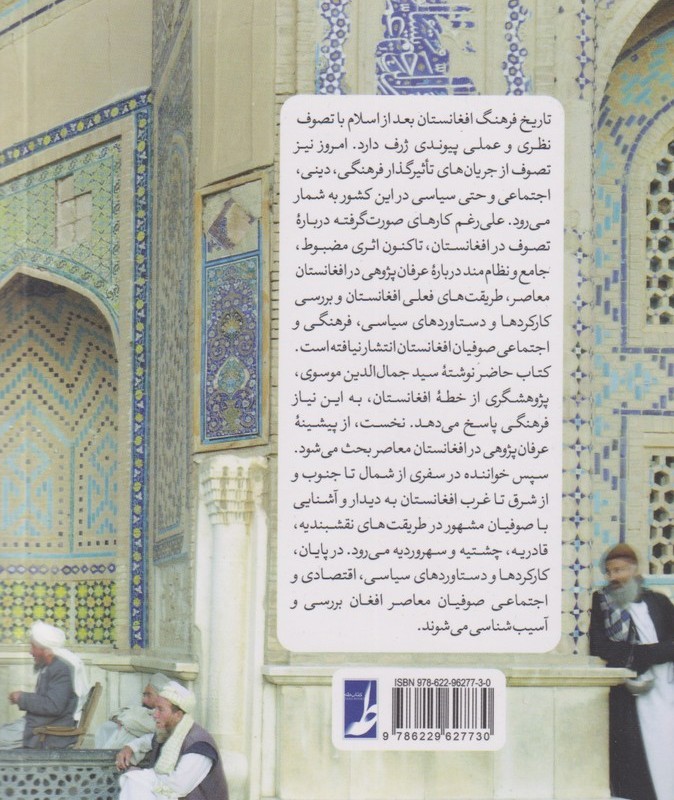 تاریخ فرهنگ افغانستان بعد از اسلام با تصوف
نظری و عملی پیوندی ژرف دارد. امروز نیز
تصوف از جریان‌های تأثیرگذار فرهنگی، دینی،
اجتماعی و حتی سیاسی در این کشور به شمار
می‌رود. علی‌رغم کارهای صورت‌گرفته دربارۀ
تصوف در افغانستان، تاکنون اثری مضبوط،
جامع و نظام‌مند دربارۀ عرفان‌پژوهی در افغانستان
معاصر، طریقت‌های فعلی افغانستان و بررسی
کارکردها و دستاوردهای سیاسی، فرهنگی و
اجتماعی صوفیان افغانستان انتشار نیافته است.
کتاب حاضر نوشتۀ سید جمال‌الدین موسوی،
پژوهشگری از خطۀ افغانستان، به این نیاز
فرهنگی پاسخ می‌دهد. نخست، از پیشینۀ
عرفان‌پژوهی در افغانستان معاصر بحث می‌شود.
سپس خواننده در سفری از شمال تا جنوب و
از شرق تا غرب افغانستان به دیدار و آشنایی
با صوفیان مشهور در طریقت‌های نقشبندیه،
قادریه، چشتیه و سهروردیه می‌رود. در پایان،
کارکردها و دستاوردهای سیاسی، اقتصادی و
اجتماعی صوفیان معاصر افغان بررسی و
آسیب‌شناسی می‌شوند.
ISBN 978-622-96277-3-0
9 786229 627730